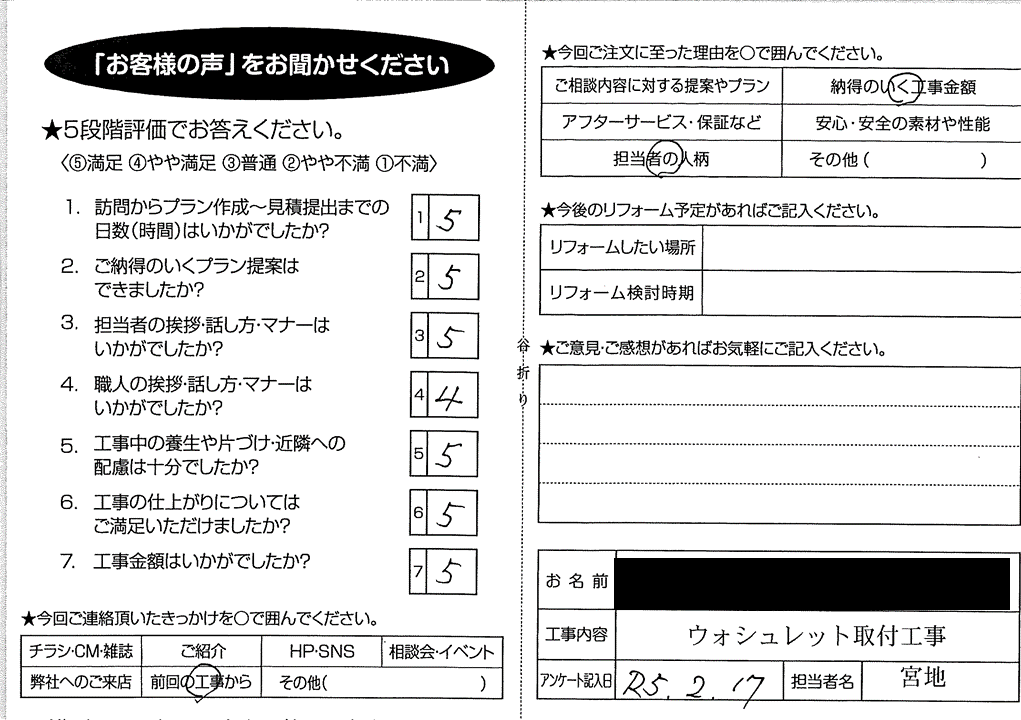 「お客様の声」をお聞かせください
★5段階評価でお答えください。
〈⑤満足 ④やや満足 ③普通 ②やや不満 ①不満〉
1. 訪問からプラン作成～見積提出までの
日数（時間）はいかがでしたか？
1 5
2. ご納得のいくプラン提案は
できましたか？
2 5
3. 担当者の挨拶・話し方・マナーは
いかがでしたか？
3 5
4. 職人の挨拶・話し方・マナーは
いかがでしたか？
4 4
5. 工事中の養生や片づけ・近隣への
配慮は十分でしたか？
5 5
6. 工事の仕上がりについては
ご満足いただけましたか？
6 5
7. 工事金額はいかがでしたか？
7 5
★今回ご連絡頂いたきっかけを○で囲んでください。
チラシ・CM・雑誌 ご紹介 HP・SNS 相談会・イベント
弊社へのご来店 前回の工事から その他（ ）
谷折り
★今回ご注文に至った理由を○で囲んでください。
ご相談内容に対する提案やプラン 納得のいく工事金額
アフターサービス・保証など 安心・安全の素材や性能
担当者の人柄 その他（ ）
★今後のリフォーム予定があればご記入ください。
リフォームしたい場所
リフォーム検討時期
★ご意見・ご感想があればお気軽にご記入ください。
お名前
工事内容 ウォシュレット取付工事
アンケート記入日 R5. 2. 17 担当者名 宮地